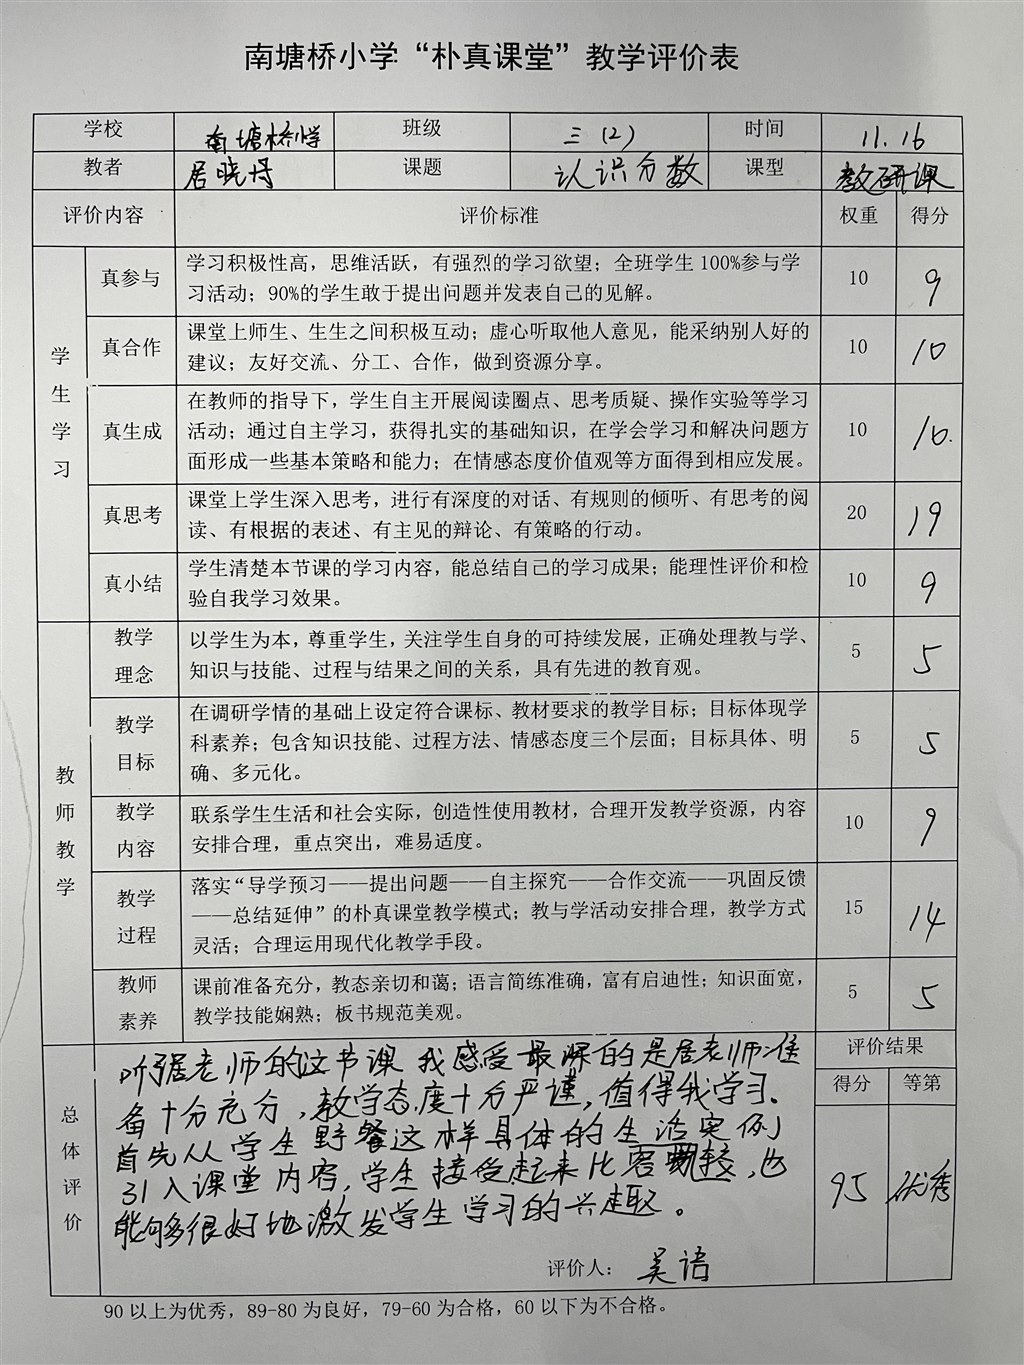 南塘桥小学“朴真课堂”教学评价表
学校 南塘桥小学 班级 三（2） 时间 11.16
教者 居晓丹 课题 认识分数 课型 教研课
评价内容 评价标准 权重 得分
学生学习
真参与 学习积极性高，思维活跃，有强烈的学习欲望；全班学生100%参与学 10 9
习活动；90%的学生敢于提出问题并发表自己的见解。
真合作 课堂上师生、生生之间积极互动；虚心听取他人意见，能采纳别人好的 10 10
建议；友好交流、分工、合作，做到资源分享。
真生成 在教师的指导下，学生自主开展阅读圈点、思考质疑、操作实验等学习 10 10.
活动；通过自主学习，获得扎实的基础知识，在学会学习和解决问题方
面形成一些基本策略和能力；在情感态度价值观等方面得到相应发展。
真思考 课堂上学生深入思考，进行有深度的对话、有规则的倾听、有思考的阅 20 19
读、有根据的表述、有主见的辩论、有策略的行动。
真小结 学生清楚本节课的学习内容，能总结自己的学习成果；能理性评价和检 10 9
验自我学习效果。
教师教学
教学理念 以学生为本，尊重学生，关注学生自身的可持续发展，正确处理教与学、 5 5
知识与技能、过程与结果之间的关系，具有先进的教育观。
教学目标 在调研学情的基础上设定符合课标、教材要求的教学目标；目标体现学 5 5
科素养；包含知识技能、过程方法、情感态度三个层面；目标具体、明
确、多元化。
教学内容 联系学生生活和社会实际，创造性使用教材，合理开发教学资源，内容 10 9
安排合理，重点突出，难易适度。
教学过程 落实“导学预习——提出问题——自主探究——合作交流——巩固反馈 15 14
——总结延伸”的朴真课堂教学模式；教与学活动安排合理，教学方式
灵活；合理运用现代化教学手段。
教师素养 课前准备充分，教态亲切和蔼；语言简练准确，富有启迪性；知识面宽， 5 5
教学技能娴熟；板书规范美观。
总体评价
听了居老师的这节课 我感受最深的是居老师准
备十分充分，教学态度十分严谨，值得我学习。
首先从学生野餐这样具体的生活实例
引入课堂内容，学生接受起来比容易接，也
能够很好地激发学生学习的兴趣。
评价人： 吴语
评价结果
得分 等第
95 优秀
90以上为优秀，89-80为良好，79-60为合格，60以下为不合格。